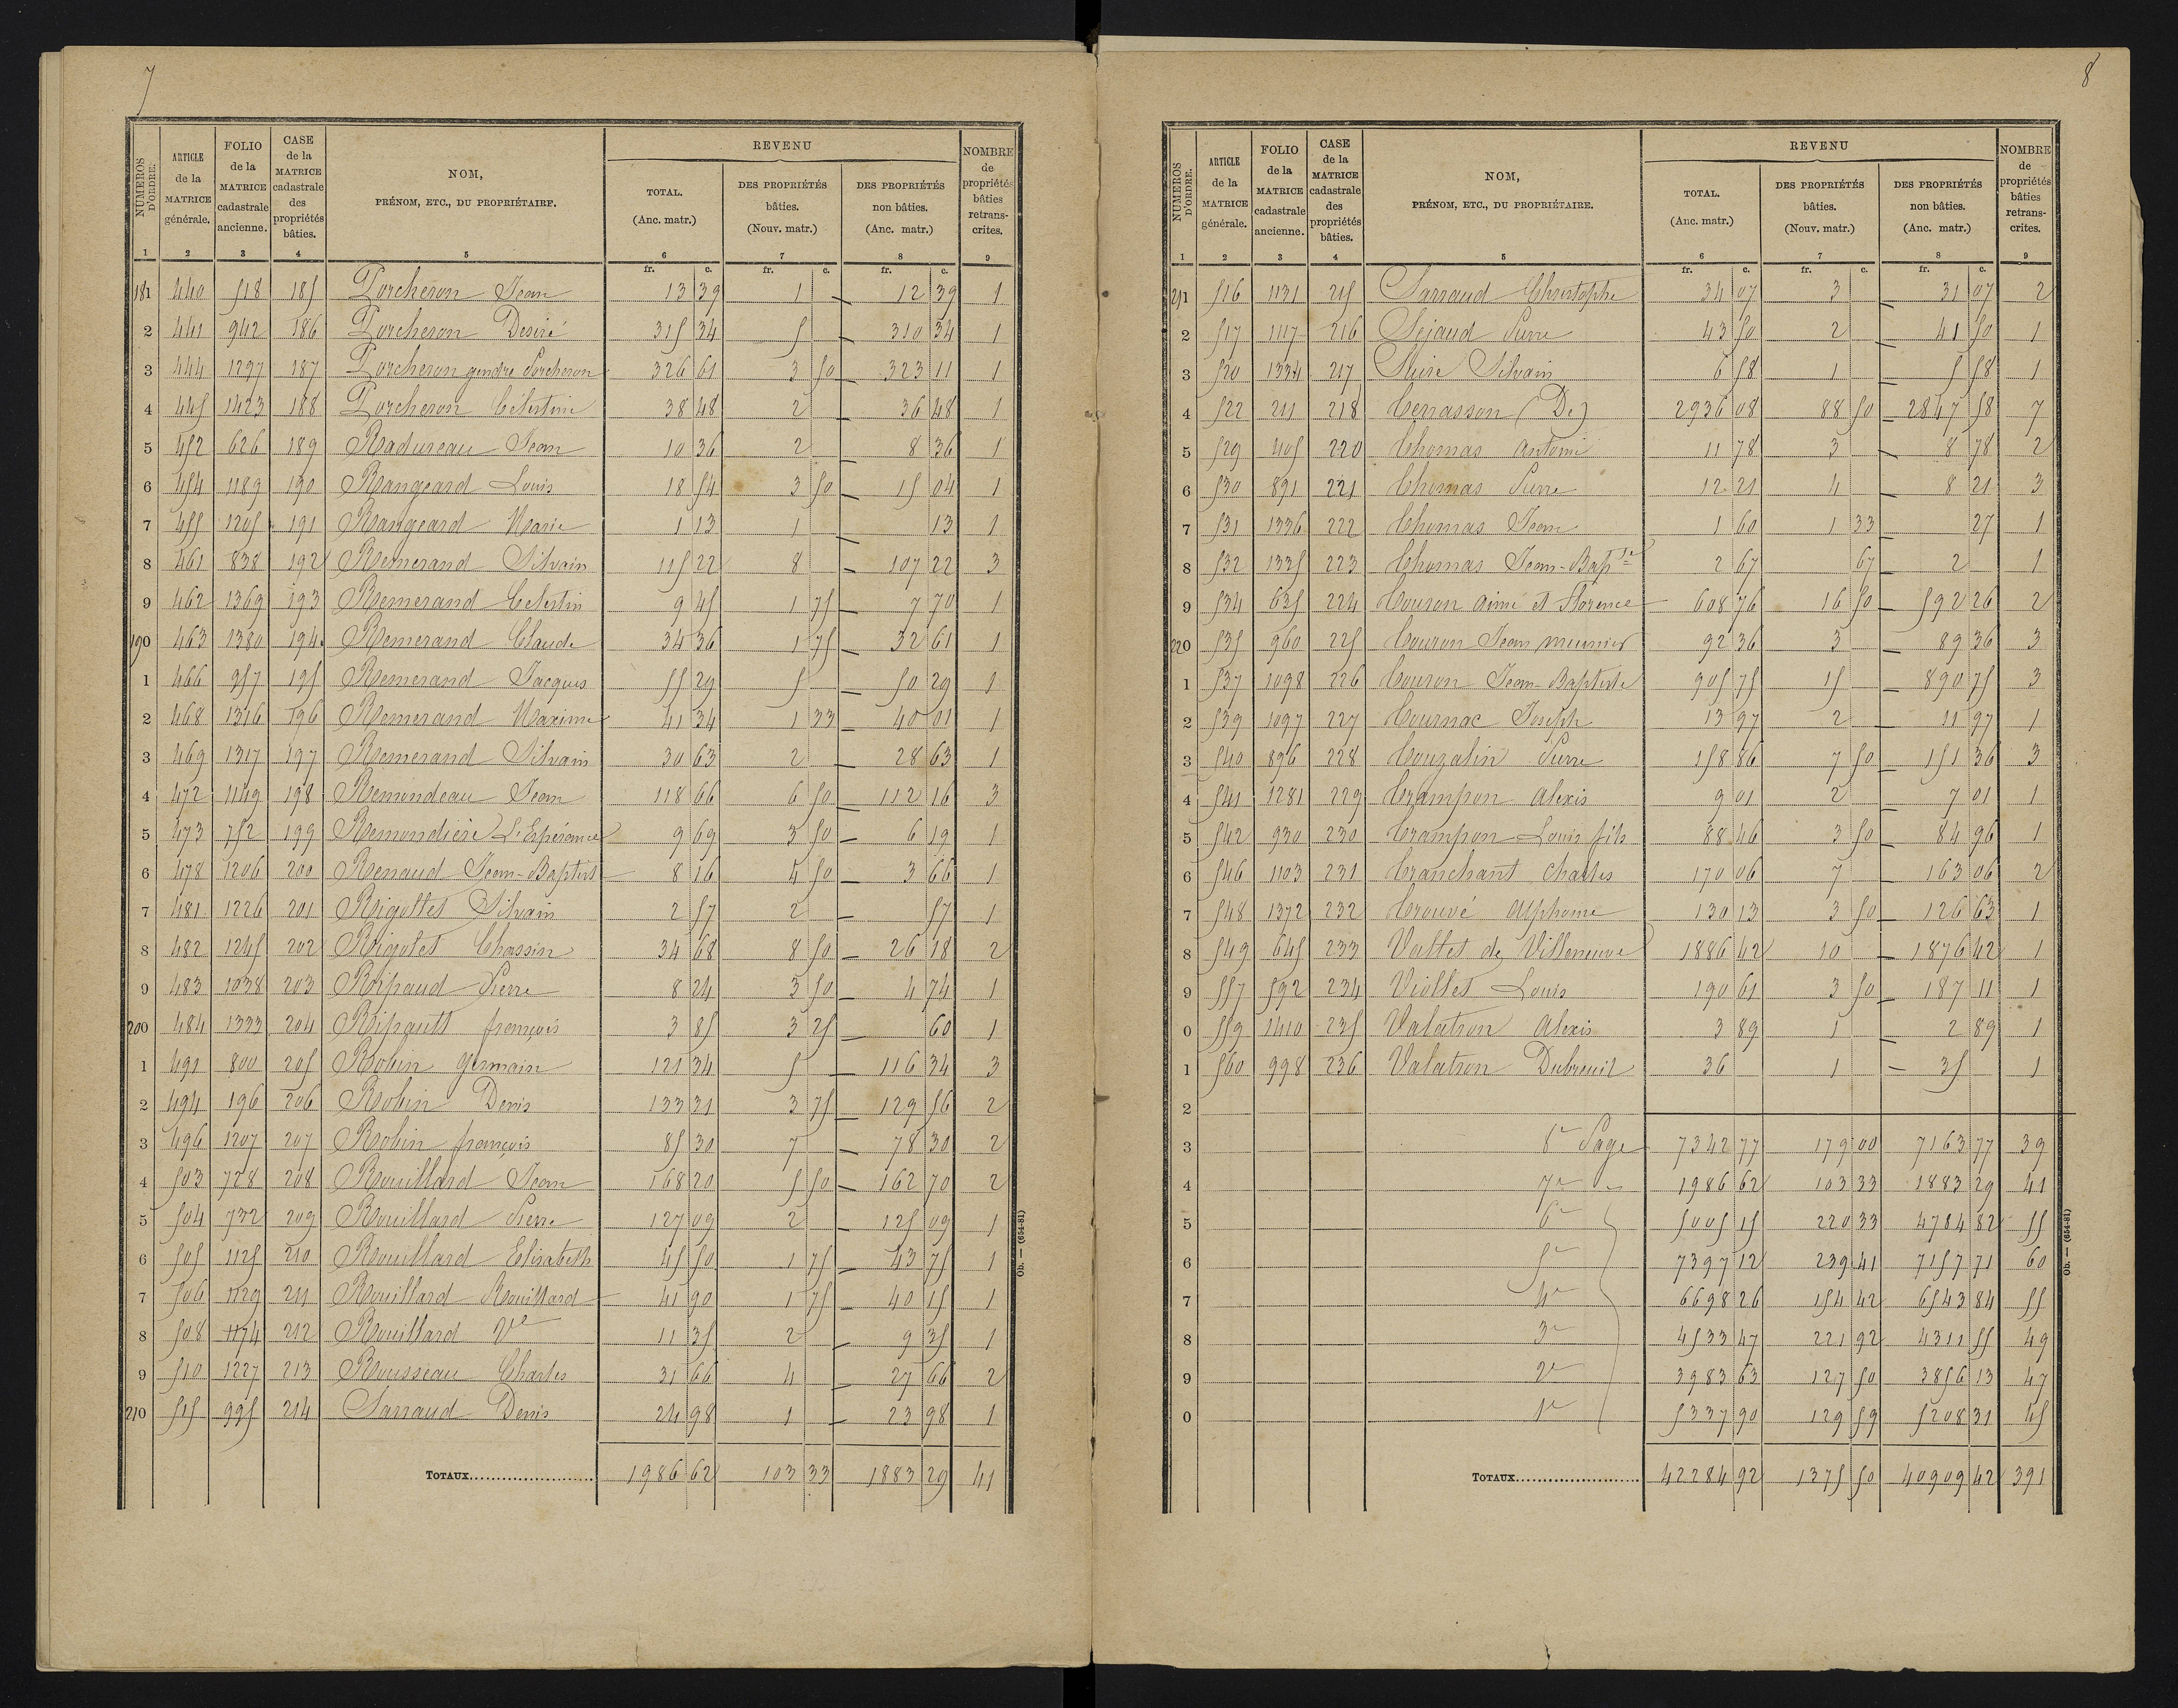 7
NUMEROS D'ORDRE. | ARTICLE de la MATRICE générale. | FOLIO de la MATRICE cadastrale ancienne. | CASE de la MATRICE cadastrale des propriétés bâties. | NOM, PRÉNOM, ETC., DU PROPRIÉTAIRE. | REVENU TOTAL. (Anc. matr.) | DES PROPRIÉTÉS bâties. (Nouv. matr.) | DES PROPRIÉTÉS non bâties. (Anc. matr.) | NOMBRE de propriétés bâties retranscrites.
1 2 3 4 5 6 7 8 9
fr. c. fr. c. fr. c.
181 440 518 185 Porcheron Jean 13 39 1 — 12 39 1
2 441 942 186 Porcheron Desiré 315 34 5 — 310 34 1
3 444 1297 187 Porcheron gendre Porcheron 326 61 3 50 — 323 11 1
4 445 1423 188 Porcheron Célestine 38 48 2 — 36 48 1
5 452 626 189 Radureau Jean 10 36 2 — 8 36 1
6 454 1189 190 Rangeard Louis 18 54 3 50 — 15 04 1
7 455 1205 191 Rangeard Marie 1 13 1 — 13 1
8 461 838 192 Remerand Silvain 115 22 8 — 107 22 3
9 462 1369 193 Remerand Celestin 9 45 1 75 — 7 70 1
190 463 1380 194 Remerand Claude 34 36 1 75 — 32 61 1
1 466 957 195 Remerand Jacques 55 29 5 — 50 29 1
2 468 1316 196 Remerand Maxime 41 34 1 33 — 40 01 1
3 469 1317 197 Remerand Silvain 30 63 2 — 28 63 1
4 472 1149 198 Remondeau Jean 118 66 6 50 — 112 16 3
5 473 752 199 Remondière L'Espérance 9 69 3 50 — 6 19 1
6 478 1206 200 Renaud Jean-Baptist 8 16 4 50 — 3 66 1
7 481 1226 201 Rigollet Silvain 2 57 2 — 57 1
8 482 1245 202 Rigolet Chassin 34 68 8 50 — 26 18 2
9 483 1038 203 Ripaud Pierre 8 24 3 50 — 4 74 1
200 484 1333 204 Ripault françois 3 85 3 25 60 1
1 491 800 205 Robin Germain 121 34 5 — 116 34 3
2 494 196 206 Robin Denis 133 31 3 75 — 129 56 2
3 496 1207 207 Robin françois 85 30 7 — 78 30 2
4 503 728 208 Rouillard Jean 168 20 5 50 — 162 70 2
5 504 732 209 Rouillard Pierre 127 09 2 — 125 09 1
6 505 1125 210 Rouillard Elisabeth 45 50 1 75 — 43 75 1
7 506 1129 211 Rouillard Rouillard 41 90 1 75 — 40 15 1
8 508 1174 212 Rouillard Ve 11 35 2 — 9 35 1
9 510 1227 213 Rousseau Charles 31 66 4 — 27 66 2
210 515 995 214 Sarraud Denis 24 98 1 — 23 98 1
TOTAUX 1986 62 103 33 1883 29 41
Ob. — (654-81)
8
NUMEROS D'ORDRE. | ARTICLE de la MATRICE générale. | FOLIO de la MATRICE cadastrale ancienne. | CASE de la MATRICE cadastrale des propriétés bâties. | NOM, PRÉNOM, ETC., DU PROPRIÉTAIRE. | REVENU TOTAL. (Anc. matr.) | DES PROPRIÉTÉS bâties. (Nouv. matr.) | DES PROPRIÉTÉS non bâties. (Anc. matr.) | NOMBRE de propriétés bâties retranscrites.
1 2 3 4 5 6 7 8 9
fr. c. fr. c. fr. c.
211 516 1131 215 Sarraud Christophe 34 07 3 — 31 07 2
2 517 1117 216 Sejaud Pierre 43 50 2 — 41 50 1
3 520 1334 217 Suire Silvain 6 58 1 — 5 58 1
4 522 211 218 Terrasson (De) 2936 08 88 50 — 2847 58 7
5 529 405 220 Thomas Antoine 11 78 3 — 8 78 2
6 530 891 221 Thomas Pierre 12 21 4 — 8 21 3
7 531 1336 222 Thomas Jean 1 60 1 33 27 1
8 532 1335 223 Thomas Jean-Bapte 2 67 67 2 1
9 534 635 224 Touron Aimé et Florence 608 76 16 50 — 592 26 2
220 535 960 225 Touron Jean meunier 92 36 3 — 89 36 3
1 537 1098 226 Touron Jean-Baptiste 905 75 15 — 890 75 3
2 539 1097 227 Tournac Joseph 13 97 2 — 11 97 1
3 540 896 228 Touzalin Pierre 158 86 7 50 — 151 36 3
4 541 1281 229 Trampon Alexis 9 01 2 — 7 01 1
5 542 930 230 Trampon Louis fils 88 46 3 50 — 84 96 1
6 546 1103 231 Tranchant Charles 170 06 7 — 163 06 2
7 548 1372 232 Trouvé Alphonse 130 13 3 50 — 126 63 1
8 549 645 233 Vallet de Villeneuve 1886 42 10 — 1876 42 1
9 557 592 234 Viollet Louis 190 61 3 50 — 187 11 1
0 559 1410 235 Valatron Alexis 3 89 1 — 2 89 1
1 560 998 236 Valatron Dubreuil 36 1 — 35 1
2
3 8e Page 7342 77 179 00 7163 77 39
4 7e 1986 62 103 33 1883 29 41
5 6e 5005 15 220 33 4784 82 55
6 5e 7397 12 239 41 7157 71 60
7 4e 6698 26 154 42 6543 84 55
8 3e 4533 47 221 92 4311 55 49
9 2e 3983 63 127 50 3856 13 47
0 1e 5337 90 129 59 5208 31 45
TOTAUX 42284 92 1375 50 40909 42 391
Ob. — (654-81)